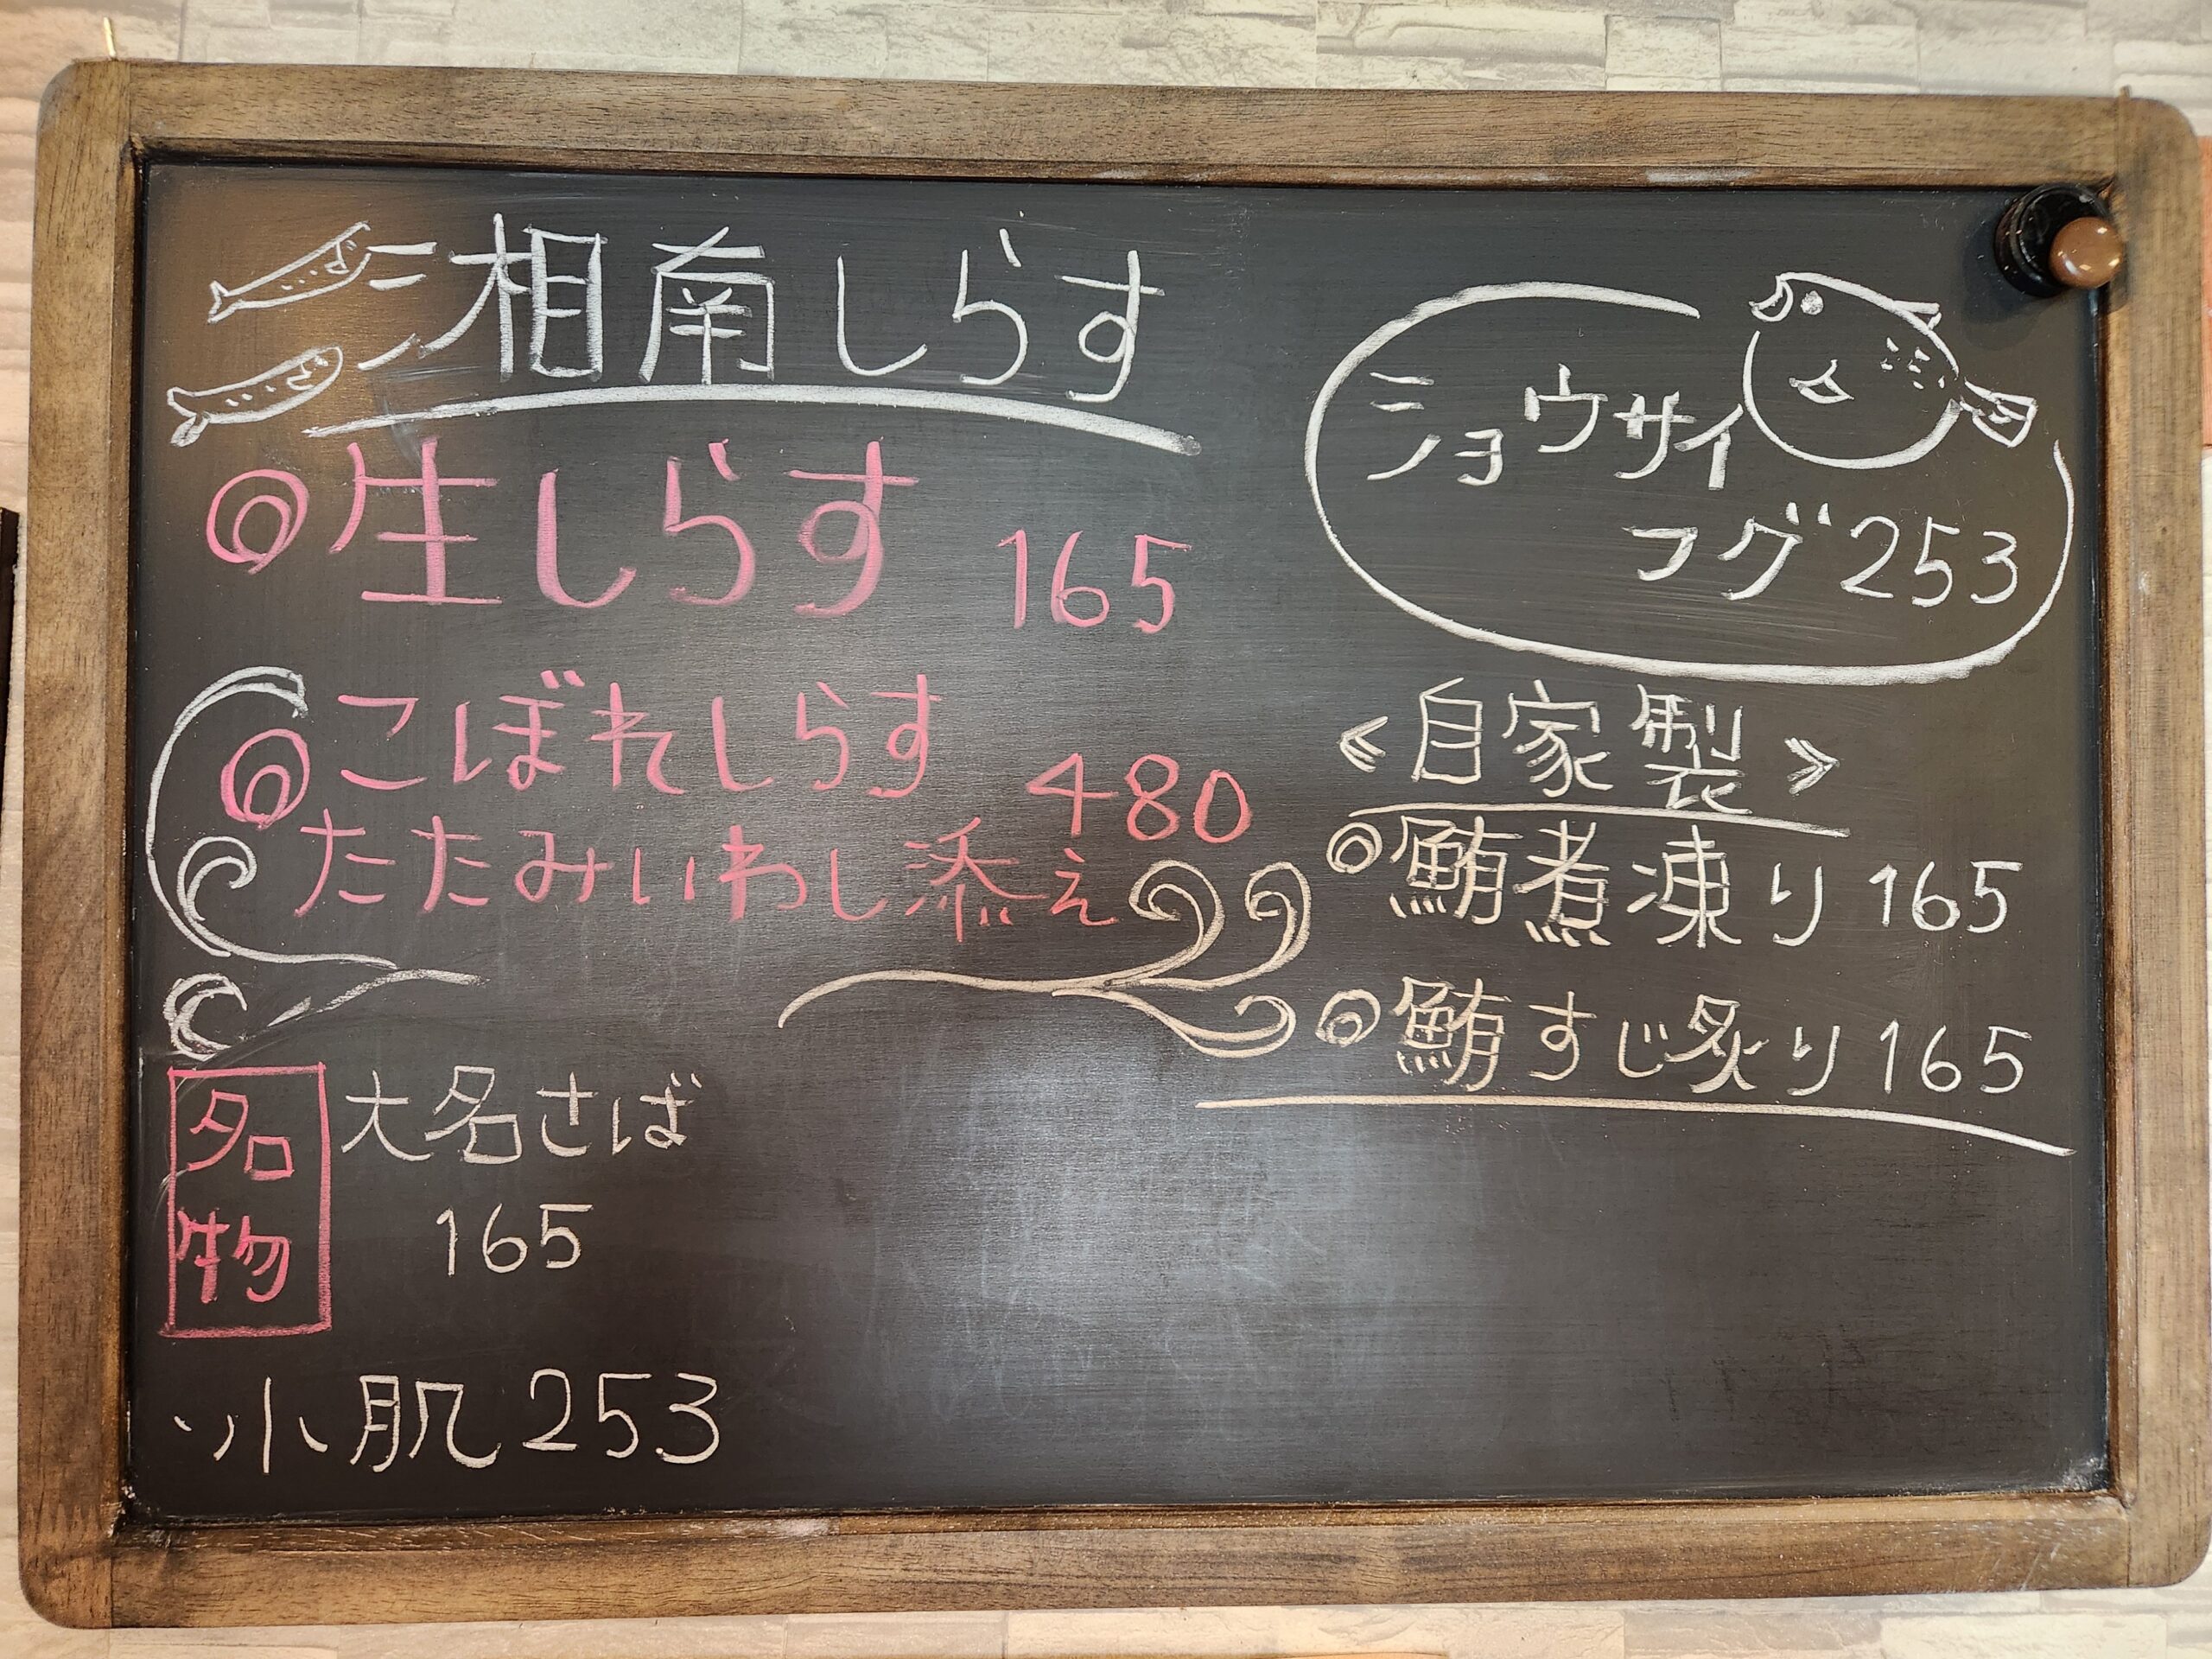 湘南しらす
◎生しらす 165
◎こぼれしらす
たたみいわし添え 480
名物
大名さば
165
小肌 253
ショウサイ
フグ 253
《自家製》
◎鮪煮凍り 165
◎鮪すじ炙り 165